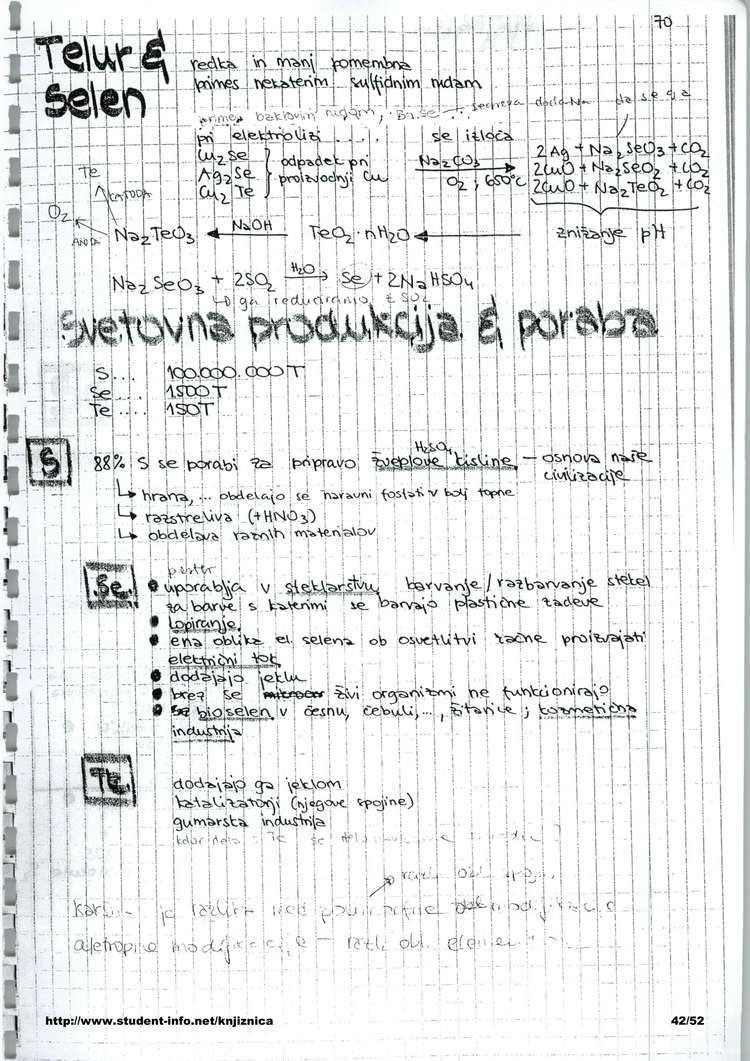 70
Telur &
Selen
redka in manj pomembna
primes nekaterim sulfidnim rudam
primes bakrovim rudam,
pri elektrolizi ..... se izloča
Cu2Se
Ag2Se
Cu2Te
odpadek pri
proizvodnji Cu
Na2CO3
O2; 650°C
2Ag + Na2SeO3 + CO2
2CuO + Na2SeO2 + CO2
2CuO + Na2TeO2 + CO2
Te
KATODA
O2
ANODA
Na2TeO3
NaOH
TeO2·nH2O
znižanje pH
Na2SeO3 + 2SO2 H2O Se + 2NaHSO4
ga reduciramo z SO2
Svetovna produkcija & poraba
S.... 100.000.000T
Se.... 1500T
Te.... 150T
S
88% S se porabi za pripravo žveplove kisline – osnova naše
H2SO4
civilizacije
hrana,... obdelajo se naravni fosfati v bolj topne
razstreliva (+HNO3)
obdelava raznih materialov
Se
pester
uporablja v steklarstvu barvanje/razbarvanje stekel
za barve s katerimi se barvajo plastične zadeve
kopiranje
ena oblika el. selena ob osvetlitvi začne proizvajati
električni tok
dodajajo jeklu
brez se živi organizmi ne funkcioniraj?
bioselen v česnu, čebuli,..., žitarice; kozmetična
industrija
Te
dodajajo ga jeklom
katalizatorji (njegove spojine)
gumarska industrija
je razlika med
alotropne modifikacije –
http://www.student-info.net/knjiznica
42/52